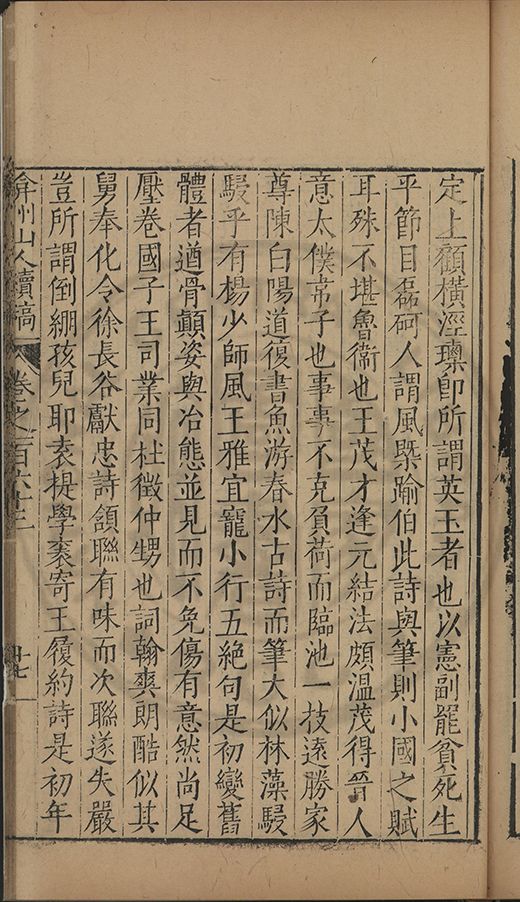 定上顧橫涇璖卽所謂英玉者也以憲副罷貧死生
平節目磊砢人謂風槩踰伯此詩與筆則小國之賦
耳殊不堪魯衞也王茂才逢元結法頗溫茂得晉人
意太僕韋子也事事不克負荷而臨池一技遠勝家
尊陳白陽道復書魚游春水古詩而筆大似林藻駸
駸乎有楊少師風王雅宜寵小行五絕句是初變舊
體者遒骨顛姿與冶態並見而不免傷有意然尚足
壓卷國子王司業同杜徵仲甥也詞翰爽朗酷似其
舅奉化令徐長谷獻忠詩頷聯有味而次聯遂失嚴
豈所謂倒繃孩兒耶袁提學袠寄王履約詩是初年
弇州山人續稿 卷之一百六十三 十七